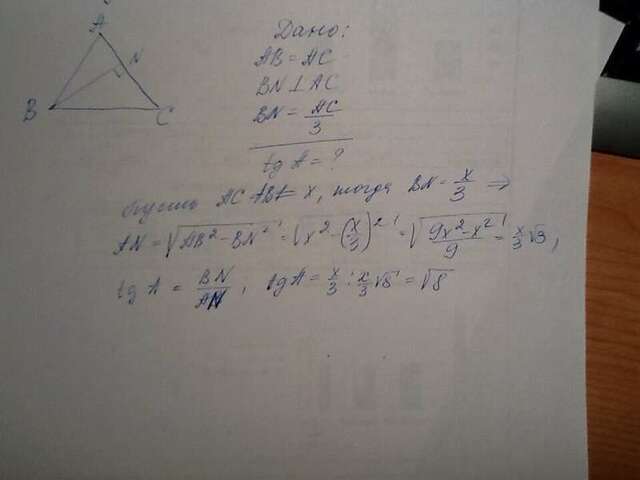 A
N
B
C
Дано:
AB = AC
BN ⊥ AC
BN = AC/3
tg A = ?
Пусть AC = AB = x, тогда BN = x/3 ⇒
AN = √(AB² - BN²) = √(x² - (x/3)²) = √((9x² - x²)/9) = x/3 √8,
tg A = BN/AN; tg A = x/3 : x/3 √8 = √8